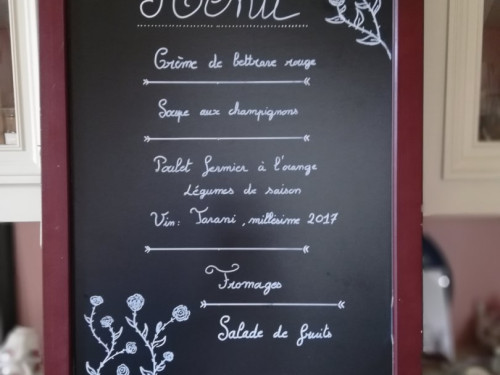 Menu
Crème de bettrave rouge
Soupe aux champignons
Poulet fermier à l'orange
Légumes de saison
Vin: Tarani, millésime 2017
Fromages
Salade de fruits